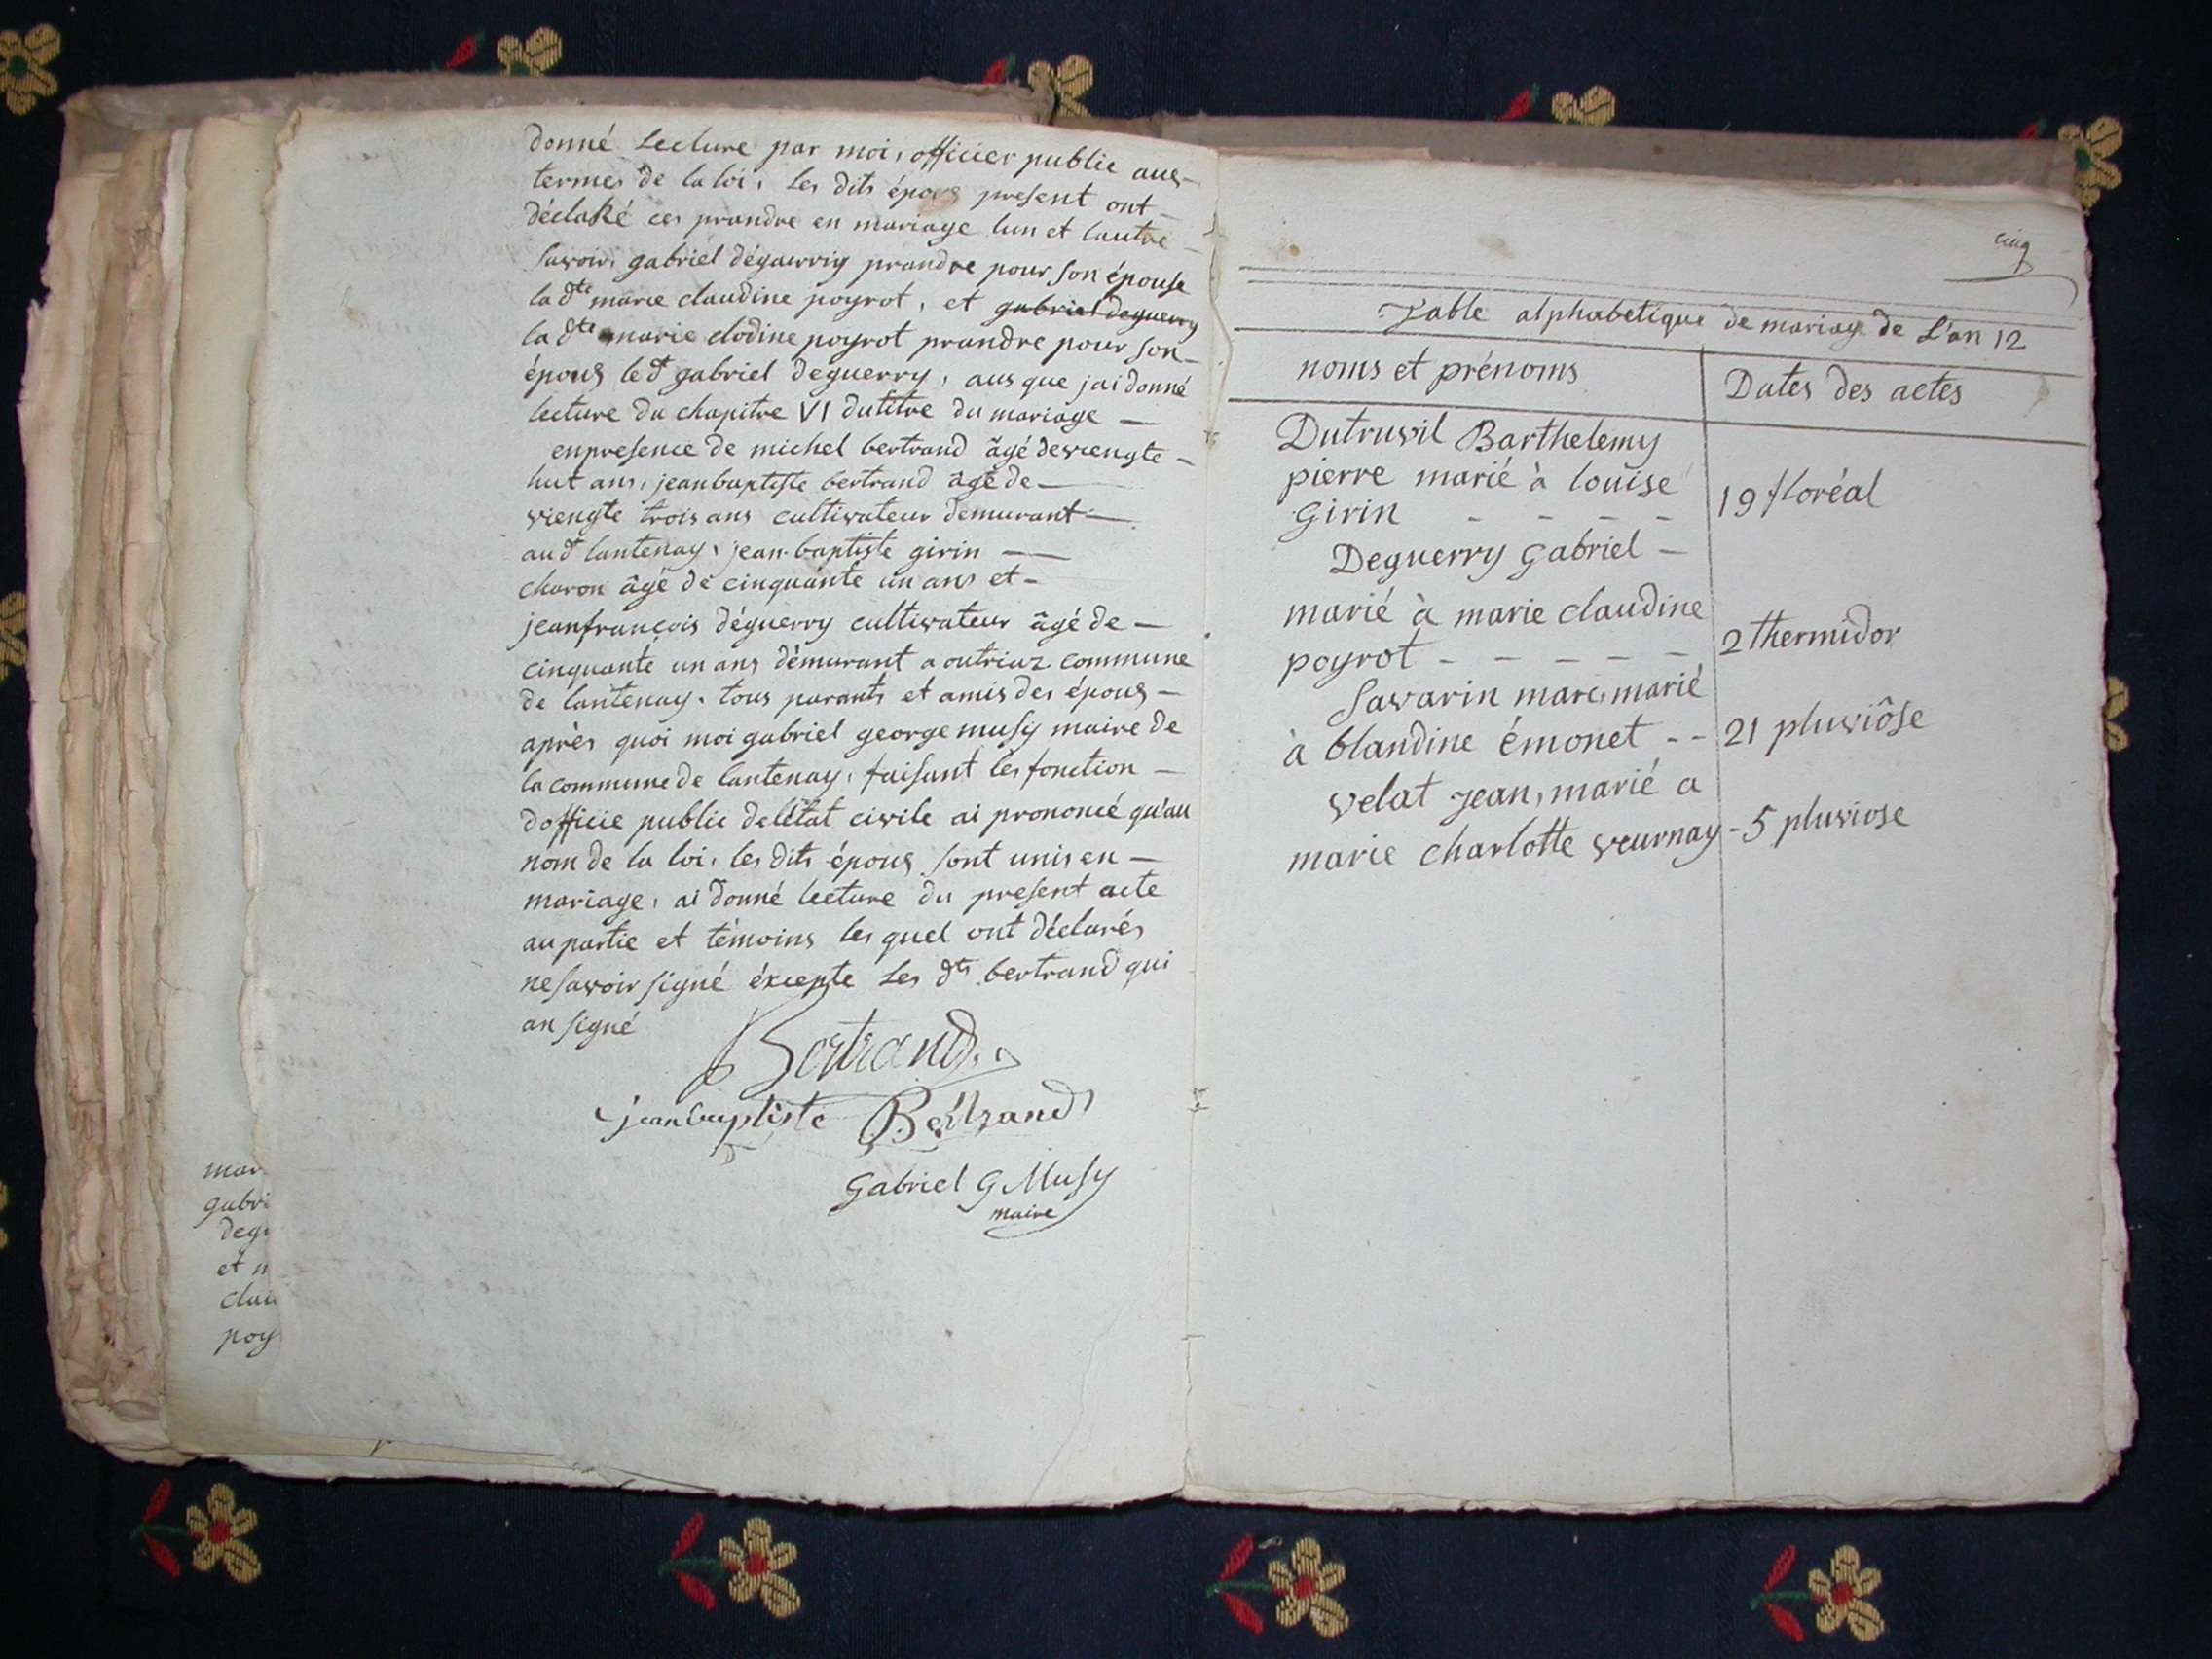 donné Lecture par moi, officier public aus
termes de la loi, Les dits épous present ont
déclaRé ces prandre en mariage lun et lautre
savoir, gabriel déguerriy prandre pour son épouse
la dte marie claudine poyrot, et gabriel deguerry
la dte marie clodine poyrot prandre pour son
épous le dt gabriel deguerry, aus que jai donné
lecture du chapitre VI dutitre du mariage
enpresence de michel bertrand âgé deviengte
hut ans, jeanbaptiste bertrand âgé de
viengte trois ans cultivateur demurant
au dt lantenay, jean-baptiste girin
charon âgé de cinquante un ans et
jeanfrançois déguerry cultivateur âgé de
cinquante un ans démurant a outriaz commune
de lantenay, tous parants et amis des épous
après quoi moi gabriel george musy maire de
la commune de lantenay, faisant les fonction
dofficie public delétat civile ai prononcé qu'au
nom de la loi, les dits épous sont unis en
mariage, ai donné lecture du present acte
au partie et témoins les quel ont déclarés
nesavoir signé éxcepte Les dts bertrand qui
an signé
Bertrand
jeanbaptiste Bertrand
Gabriel G Musy
maire
mar
gabri
degu
et m
clau
poy
cinq
Table alphabetique de mariage de L'an 12
noms et prénoms
Dates des actes
Dutruvil Barthelemy
pierre marié à louise
Girin - - - - 19 floréal
Deguerry Gabriel -
marié à marie claudine
poyrot - - - - - 2 thermidor
Savarin marc, marié
à blandine émonet - - 21 pluviôse
velat jean, marié a
marie charlotte veurnay - 5 pluviose